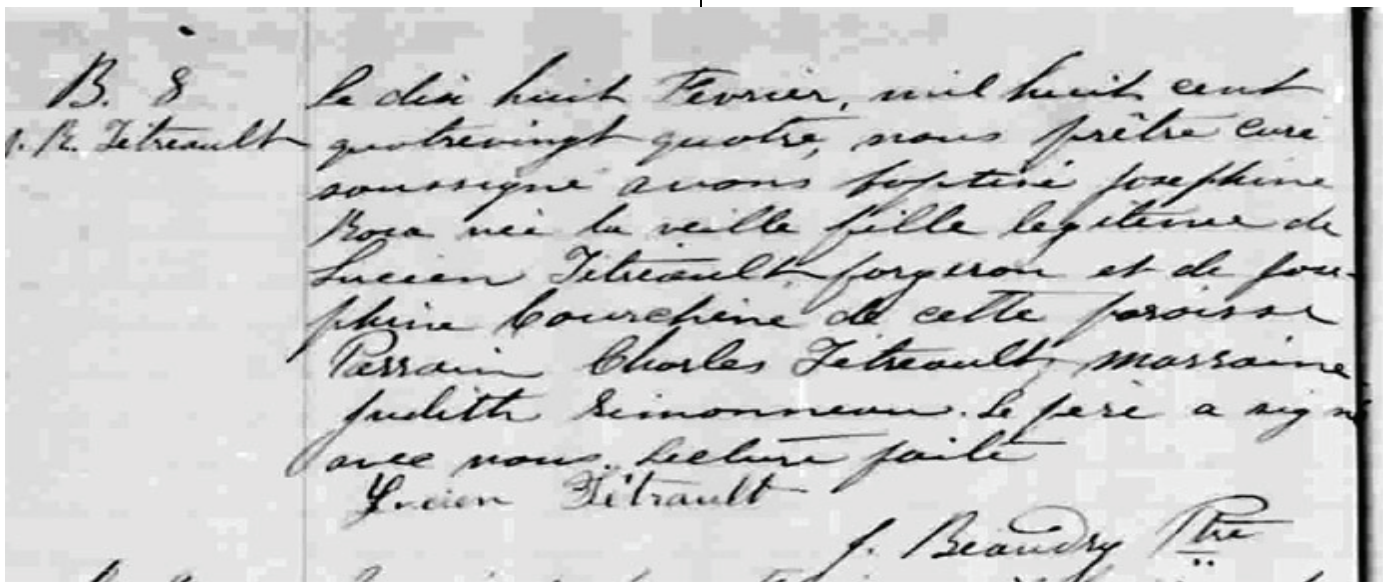 B. 8
J. R. Tétreault
Le dix huit Fevrier, mil huit cent
quatrevingt quatre, nous prêtre curé
soussigné avons baptisé Josephine
Rosa née la veille fille legitime de
Lucien Tétreault forgeron et de José-
phine Courchène de cette paroisse
Parrain Charles Tétreault, marraine
Judith Simonneau. Le père a signé
avec nous. Lecture faite
Lucien Tétrault
J. Beaudry Ptre